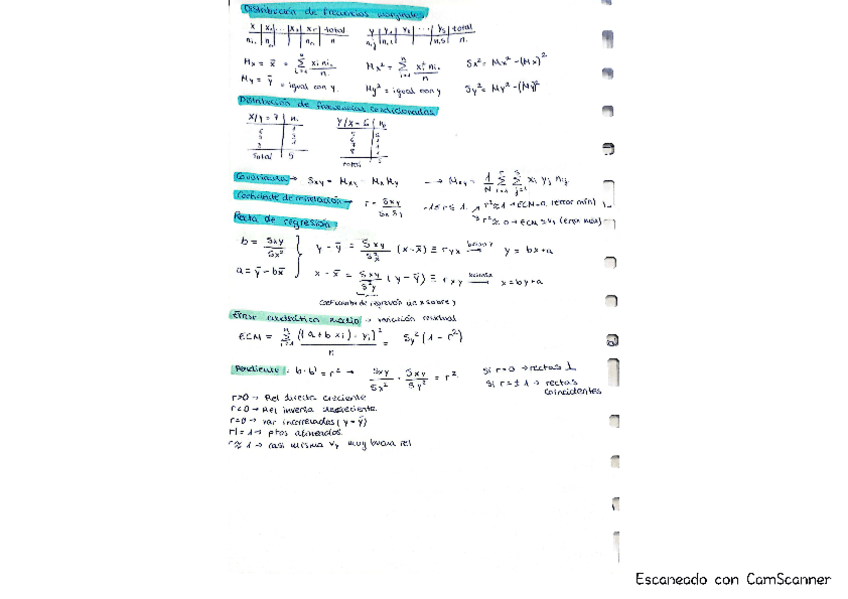 Distribución de frecuencias marginales
x | x₁ | ... | xᵣ | total
y | y₁ | y₂ | ... | yₛ | total
Mx = x̄ = Σ xi ni. / n. Mx² = Σ xi² ni. / n. Sx² = Mx² - (Mx)²
My = ȳ = igual con y. My² = igual con y Sy² = My² - (My)²
Distribución de frecuencias condicionadas
X/y = 7 | ni Y/X = 5 | ni
total | 5 total
Covarianza → Sxy = Mxy - Mx My → Mxy = 1/N Σ Σ xi yj nij
Coeficiente de correlación → r = Sxy / Sx Sy -1 ≤ r ≤ 1. r² ≈ 1 → ECM ≈ 0. (error mín)
r² ≈ 0 → ECM (error max)
Recta de regresión:
b = Sxy / Sx² y - ȳ = Sxy / Sx² (x - x̄) ≡ ryx → y = bx + a
a = ȳ - bx̄ x - x̄ = Sxy / S²y (y - ȳ) ≡ rxy → x = by + a
coeficiente de regresión de x sobre y
Error cuadrático medio → variación residual
ECM = Σ [(a + b xi) - yi]² / n = Sy² (1 - r²)
Pendiente: b · b' = r² → Sxy / Sx² · Sxy / Sy² = r² Si r = 0 → rectas ⊥
Si r = ±1 → rectas
coincidentes
r>0 → Rel directa creciente
r<0 → Rel inversa decreciente
r=0 → var incorreladas (y = ȳ)
r = 1 → ptos alineados
r ≈ 1 → casi misma muy buena rel
Escaneado con CamScanner